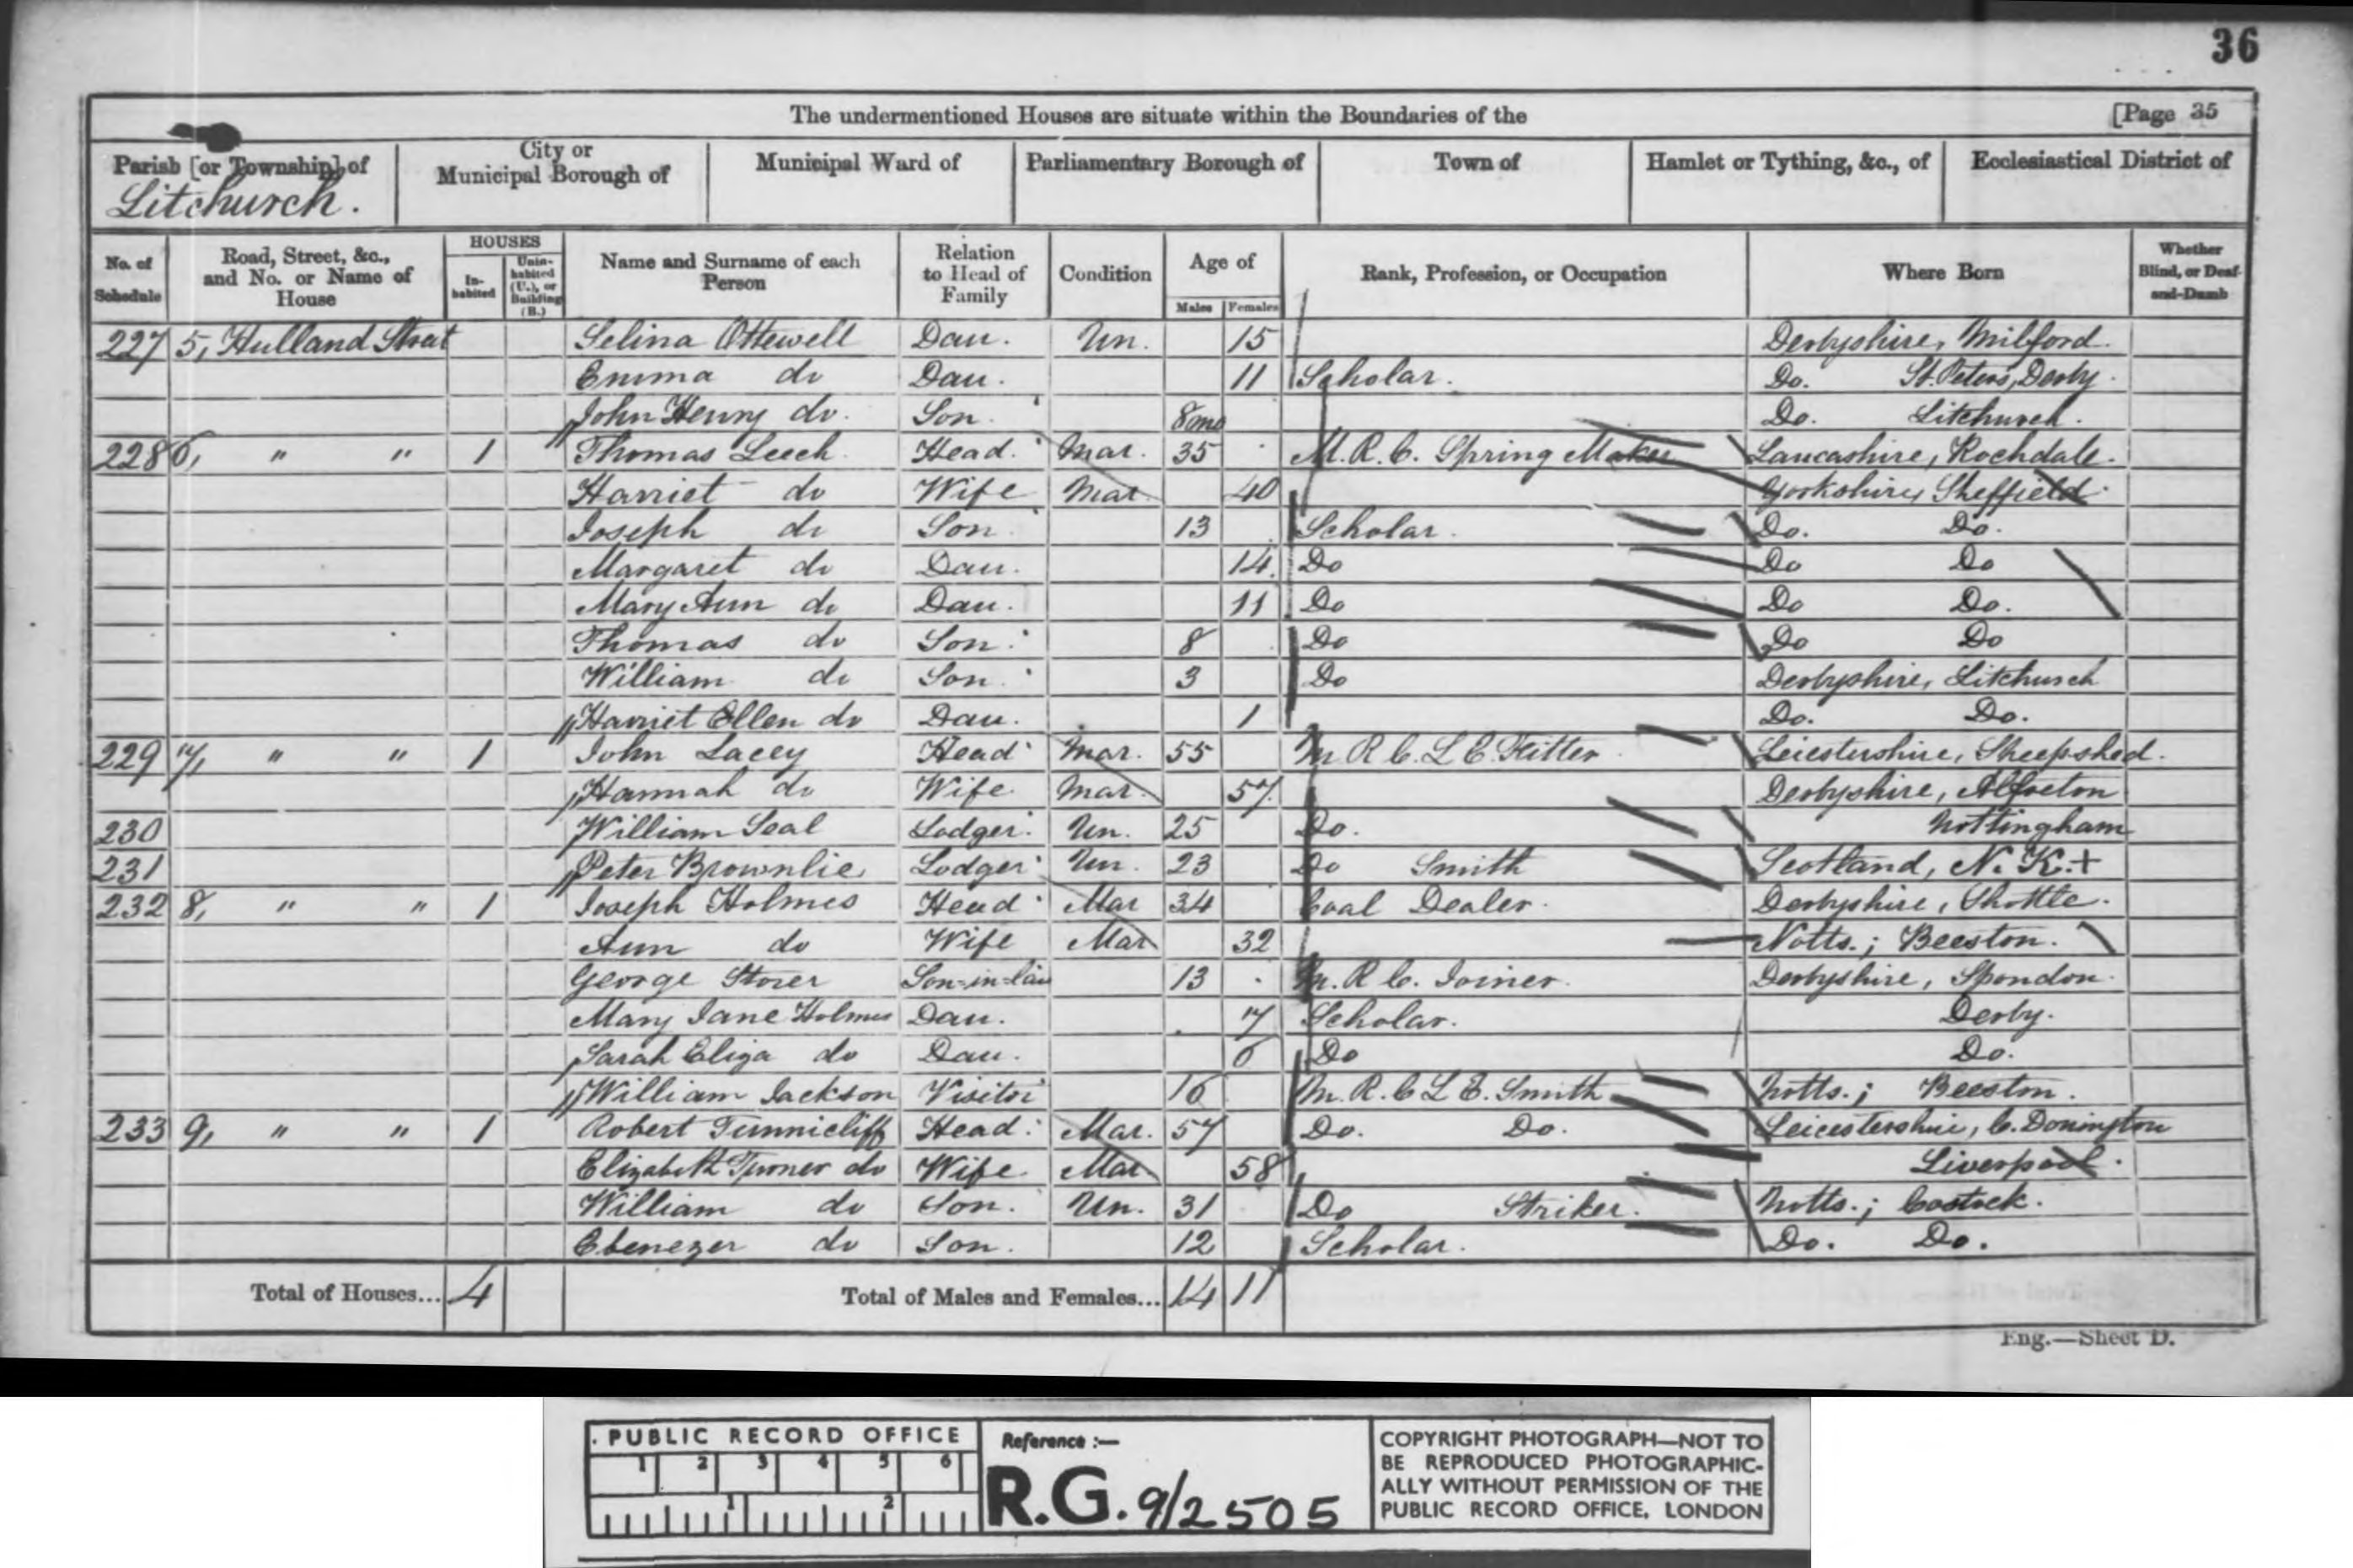 36
The undermentioned Houses are situate within the Boundaries of the [Page 35
Parish [or Township] of City or Municipal Borough of Municipal Ward of Parliamentary Borough of Town of Hamlet or Tything, &c., of Ecclesiastical District of
Litchurch.
No. of Schedule Road, Street, &c., and No. or Name of House HOUSES Inhabited Uninhabited (U.), or Building (B.) Name and Surname of each Person Relation to Head of Family Condition Age of Males Females Rank, Profession, or Occupation Where Born Whether Blind, or Deaf-and-Dumb
227 5, Hulland Street Selina Ottewell Dau. Un. 15 Derbyshire, Milford.
Emma do Dau. 11 Scholar. Do. St. Peters, Derby.
John Henry do. Son. 8mo Do. Litchurch.
228 6, " " 1 Thomas Leech Head. Mar. 35 M.R.C. Spring Maker Lancashire, Rochdale.
Harriet do Wife Mar. 40 Yorkshire, Sheffield.
Joseph do Son 13 Scholar. Do. Do.
Margaret do Dau. 14 Do Do Do
Mary Ann do Dau. 11 Do Do Do.
Thomas do Son. 8 Do Do Do
William do Son. 3 Do Derbyshire, Litchurch
Harriet Ellen do Dau. 1 Do. Do.
229 7, " " 1 John Lacey Head Mar. 55 M R C. L E. Fitter Leicestershire, Sheepshed.
Hannah do Wife Mar. 57 Derbyshire, Alfreton
230 William Seal Lodger. Un. 25 Do. Nottingham
231 Peter Brownlie Lodger Un. 23 Do Smith Scotland, N. K. +
232 8, " " 1 Joseph Holmes Head Mar 34 Coal Dealer. Derbyshire, Shottle.
Ann do Wife Mar 32 Notts.; Beeston.
George Storer Son-in-law 13 M.R.C. Joiner. Derbyshire, Spondon.
Mary Jane Holmes Dau. 7 Scholar. Derby.
Sarah Eliza do Dau. 6 Do Do.
William Jackson Visitor 16 M.R.C L E. Smith Notts.; Beeston.
233 9, " " 1 Robert Tunnicliff Head. Mar. 57 Do. Do. Leicestershire, C. Donington
Elizabeth Turner do Wife Mar 58 Liverpool.
William do Son. Un. 31 Do Striker. Notts.; Costock.
Ebenezer do Son. 12 Scholar. Do. Do.
Total of Houses... 4 Total of Males and Females... 14 11
Eng.—Sheet D.
PUBLIC RECORD OFFICE
1 2 3 4 5 6
1 2
Reference :—
R.G. 9/2505
COPYRIGHT PHOTOGRAPH—NOT TO
BE REPRODUCED PHOTOGRAPHIC-
ALLY WITHOUT PERMISSION OF THE
PUBLIC RECORD OFFICE, LONDON